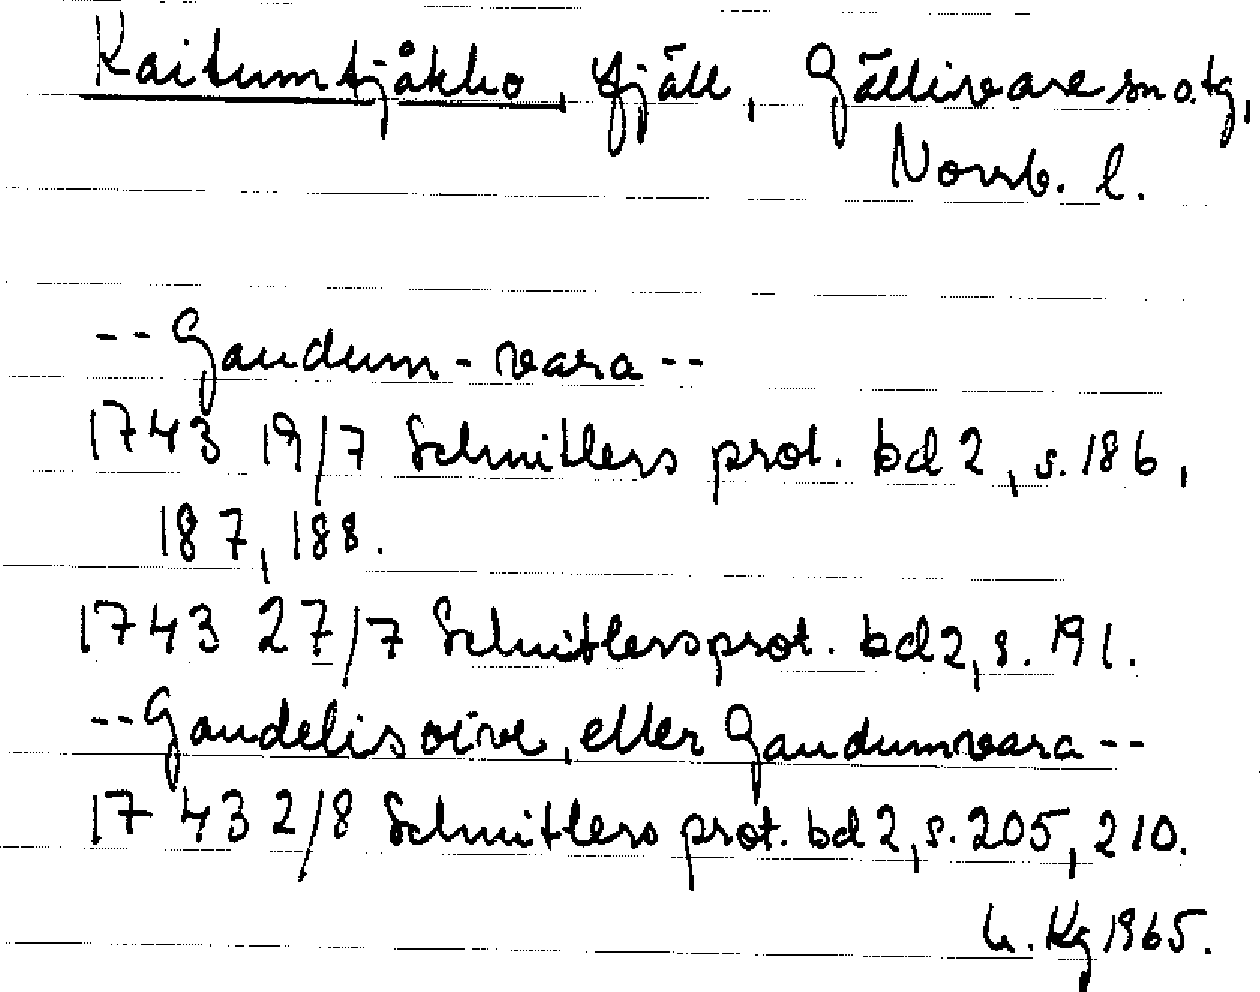 Kaitumtjåkko, fjäll, Gällivare sn o. tg,
Norrb. l.
-- Gaudum-vara --
1743 19/7 Schnitlers prot. bd 2, s. 186,
187, 188.
1743 27/7 Schnitlers prot. bd 2, s. 191.
-- Gaudelisoive, eller Gaudumvara --
1743 2/8 Schnitlers prot. bd 2, s. 205, 210.
Kg 1965.